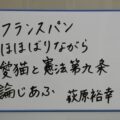 フランスパン
ほほばりながら
愛猫と憲法第九条
論じあふ 萩原裕幸